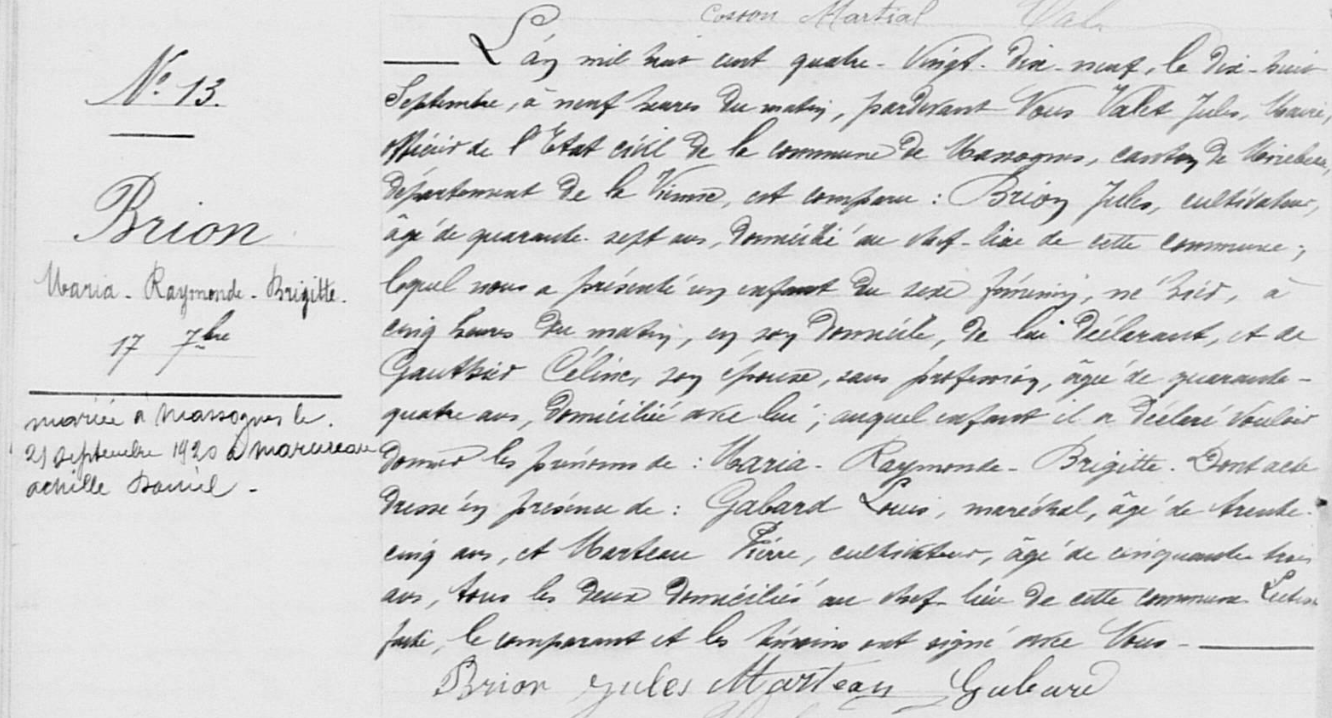 Cosson Martial Val
N° 13.
Brion
Maria - Raymonde - Brigitte.
17 7bre
mariée à Massognes le
21 septembre 1920 à Marcireau
achille Daniel -
L'an mil huit cent quatre-vingt-dix-neuf, le dix-huit
Septembre, à neuf heures du matin, pardevant Nous Valet Jules, Maire,
officier de l'Etat civil de la commune de Massognes, canton de Mirebeau,
département de la Vienne, est comparu : Brion Jules, cultivateur,
âgé de quarante-sept ans, domicilié au chef-lieu de cette commune ;
lequel nous a présenté un enfant du sexe féminin, né hier, à
cinq heures du matin, en son domicile, de lui déclarant, et de
Gauthier Céline, son épouse, sans profession, âgée de quarante-
quatre ans, domiciliée avec lui ; auquel enfant il a déclaré vouloir
donner les prénoms de : Maria - Raymonde - Brigitte. Dont acte
dressé en présence de : Gabard Louis, maréchal, âgé de trente-
cinq ans, et Marteau Pierre, cultivateur, âgé de cinquante-trois
ans, tous les deux domiciliés au chef-lieu de cette commune. Lecture
faite, le comparant et les témoins ont signé avec Nous -
Brion Jules Marteau Gabard